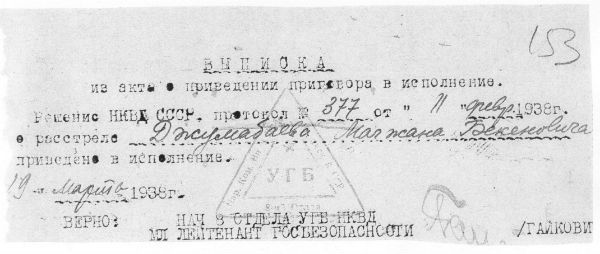 153
ВЫПИСКА
из акта о приведении приговора в исполнение.
Решение НКВД СССР, протокол № 377 от " " февр. 1938г.
о расстреле Джумабаева Магжана Бекеновича
приведено в исполнение.
19 " Марта 1938г.
УГБ
ВЕРНО: НАЧ 8 ОТДЕЛА УГБ НКВД
МЛ ЛЕЙТЕНАНТ ГОСБЕЗОПАСНОСТИ /ГАЙКОВИ